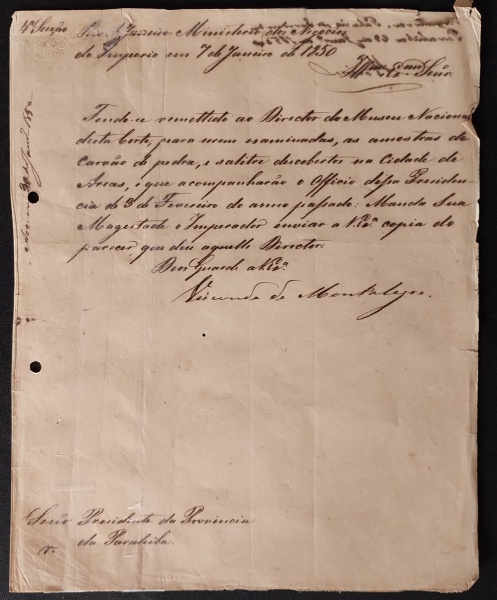 4ª Secção
Rio de Janeiro Ministerio dos Negocios
do Imperio em 7 de Janeiro de 1850
Illmo e Exmo Senr.
Tendo-se remettido ao Director do Museu Nacional
desta Corte, para serem examinadas, as amostras de
carvão de pedra, e salitre descobertos na Cidade de
Areas, e que acompanharão o Officio dessa Presiden-
cia de 3 de Fevereiro do anno passado: Manda Sua
Magestade o Imperador enviar a V. Exª copia do
parecer, que deu aquelle Director.
Deos Guarde a V. Exª
Visconde de Montalegre.
Senr Presidente da Provincia
da Parahiba.